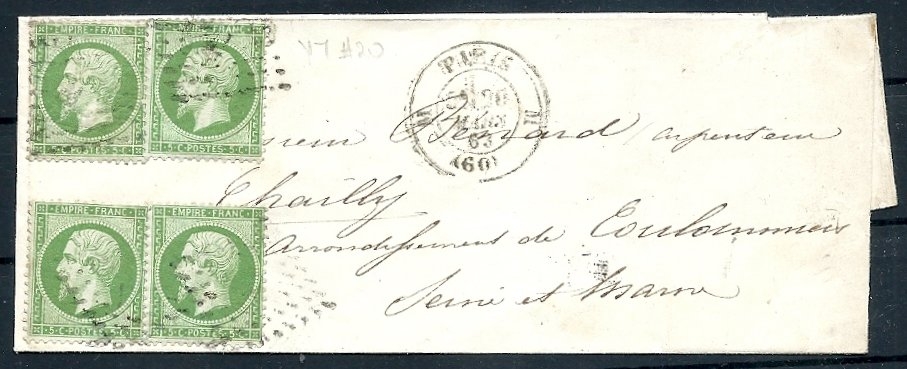 EMPIRE FRANC EMPIRE FRANC
5·C·POSTES·5·C· 5·C·POSTES·5·C·
PARIS
AOUT
63
(60)
Monsieur Benard arpenteur
Chailly
arrondissement de Coulommiers
Seine et Marne
EMPIRE FRANC EMPIRE FRANC
5·C·POSTES·5·C· 5·C·POSTES·5·C·